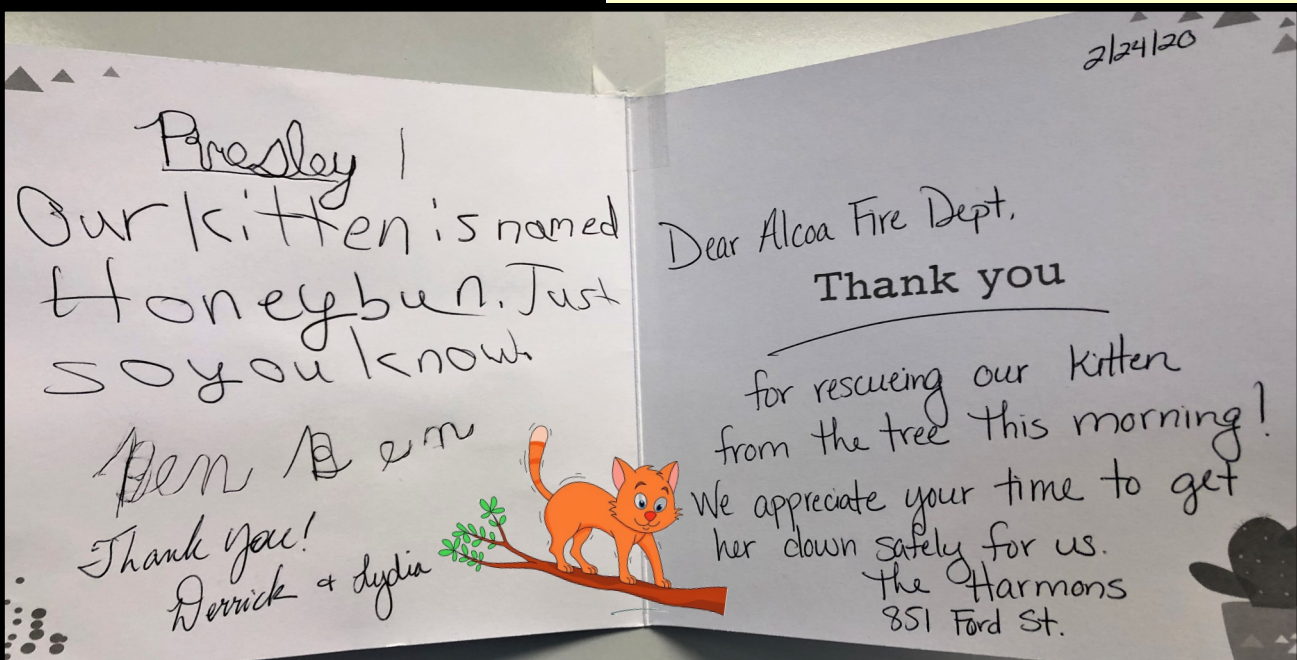 Presley
Our kitten is named
Honeybun. Just
so you know.
Ben Ben
Thank you!
Derrick + Lydia
2/24/20
Dear Alcoa Fire Dept.
Thank you
for rescueing our kitten
from the tree this morning!
We appreciate your time to get
her down safely for us.
The Harmons
851 Ford St.